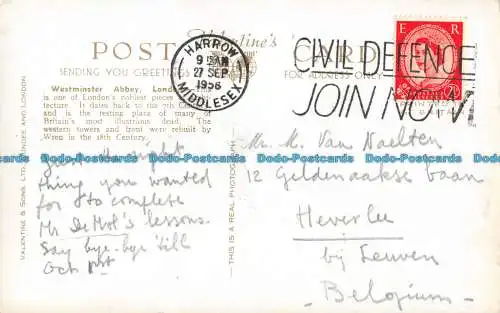 POST CARD
Valentine's
SENDING YOU GREETINGS
FOR ADDRESS ONLY
HARROW
9 AM
27 SEP
1956
MIDDLESEX
CIVIL DEFENCE
JOIN NOW
E R
Westminster Abbey, London
is one of London's noblest pieces
It dates back to the 7th Century
and is the resting place of many of
Britain's most illustrious dead. The
western towers and front were rebuilt by
Wren in the 18th Century.
Just the right
thing you wanted
for to complete
Mr De Mol's lessons.
Say bye-bye 'till
Oct 1st
VALENTINE & SONS, LTD., DUNDEE AND LONDON
THIS IS A REAL PHOTOGRAPH
Mr. M. Van Naelten
12 Geldenaakse baan
Heverlee
bij Leuven
- Belgium -
Dodo-Postcards Dodo-Postcards Dodo-Postcards Dodo-Postcards Dodo-Postcards